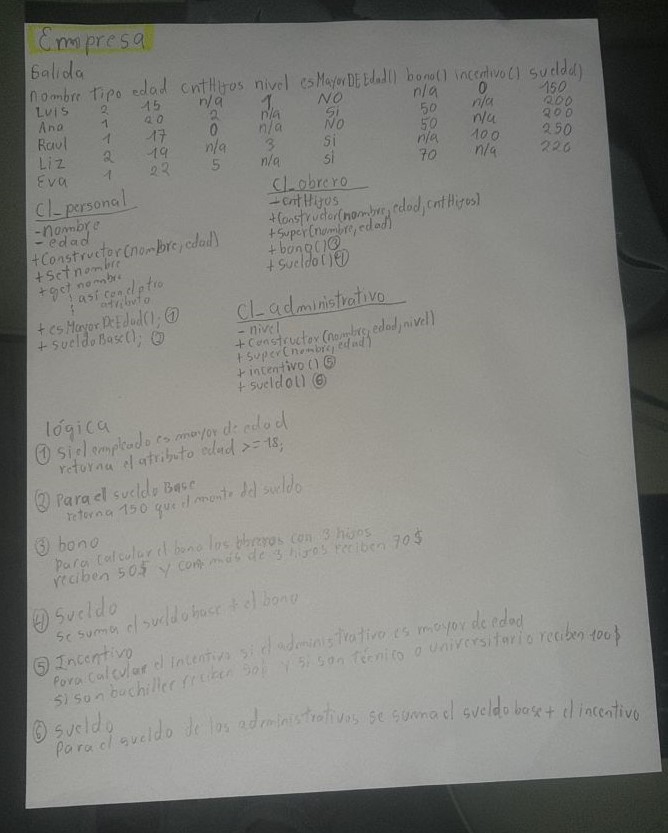 Empresa
Salida
nombre tipo edad cntHijos nivel esMayorDEEdad() bono() incentivo() sueldo()
Luis 2 15 n/a 1 NO n/a 0 150
Ana 1 20 2 n/a Si 50 n/a 200
Raul 1 17 0 n/a NO 50 n/a 200
Liz 2 19 n/a 3 si n/a 100 250
Eva 1 22 5 n/a si 70 n/a 220
Cl_personal
-nombre
-edad
+Constructor(nombre, edad)
+setnombre
+getnombre
así con el otro
atributo
+esMayorDeEdad(); ①
+sueldoBase(); ②
Cl_obrero
-cntHijos
+Constructor(nombre, edad, cntHijos)
+super(nombre, edad)
+bono() ③
+sueldo() ④
Cl_administrativo
-nivel
+Constructor(nombre, edad, nivel)
+super(nombre, edad)
+incentivo() ⑤
+sueldo() ⑥
lógica
① Si el empleado es mayor de edad
retorna el atributo edad >= 18;
② Para el sueldo Base
retorna 150 que el monto del sueldo
③ bono
para calcular el bono los obreros con 3 hijos
reciben 50$ y con más de 3 hijos reciben 70$
④ Sueldo
se suma el sueldo base + el bono
⑤ Incentivo
Para calcular el incentivo si el administrativo es mayor de edad
si son bachiller reciben 50$ y si son Técnico o universitario reciben 100$
⑥ sueldo
Para el sueldo de los administrativos se suma el sueldo base + el incentivo